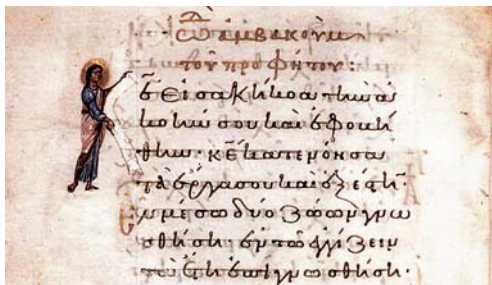 ἀμβακοὺμ
τοῦ προφήτου:
κε εἰσακήκοα τὴν ἀ
κοήν σου καὶ ἐφοβή
θην· κε κατενόησα
τὰ ἔργα σου καὶ ἐξέστη
ἐν μέσω δύο ζώων γνω
σθήση· ἐν τῶ ἐγγίζειν
τὰ ἔτη ἐπιγνωσθήση·